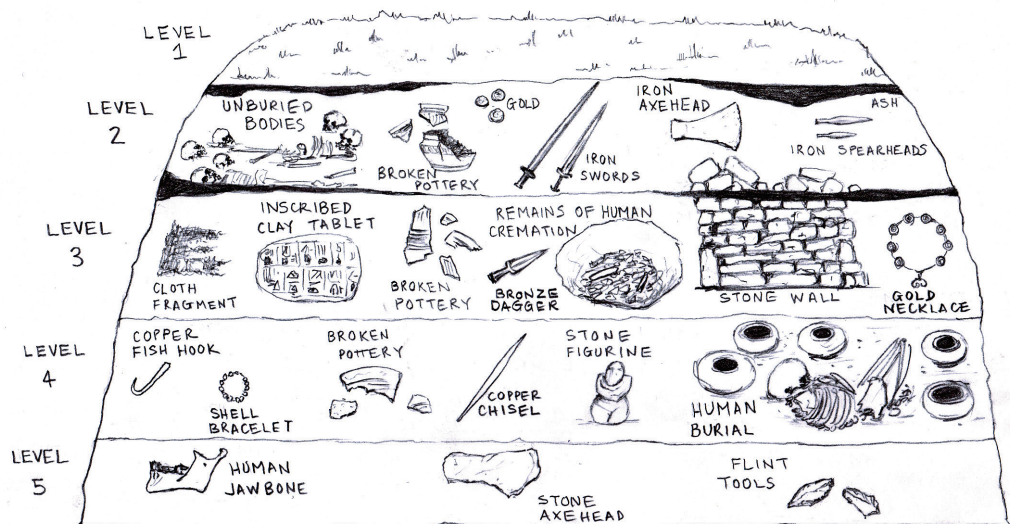 LEVEL
1
LEVEL
2
UNBURIED
BODIES
BROKEN
POTTERY
GOLD
IRON
SWORDS
IRON
AXEHEAD
ASH
IRON SPEARHEADS
LEVEL
3
CLOTH
FRAGMENT
INSCRIBED
CLAY TABLET
BROKEN
POTTERY
REMAINS OF HUMAN
CREMATION
BRONZE
DAGGER
STONE WALL
GOLD
NECKLACE
LEVEL
4
COPPER
FISH HOOK
SHELL
BRACELET
BROKEN
POTTERY
COPPER
CHISEL
STONE
FIGURINE
HUMAN
BURIAL
LEVEL
5
HUMAN
JAWBONE
STONE
AXEHEAD
FLINT
TOOLS